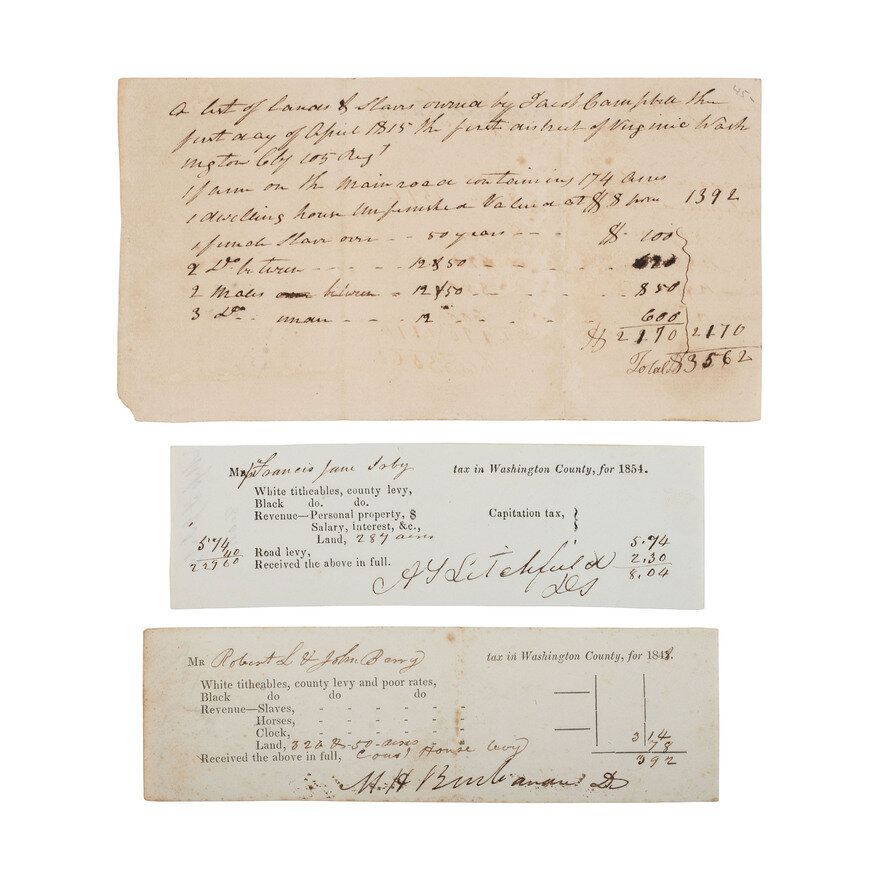 45-
A list of lands & Slaves owned by Jacob Campbell the
first day of April 1815 the first district of Virginia Wash
ington Cty 105 Regt
1 farm on the main road containing 174 acres
1 dwelling house Unfinished Valued at $8 1392
1 female Slave over - - 50 years - - - $ 100
2 Do between - - - - 12 & 50 - - - - - 620
2 males between - 12 & 50 - - - - - 850
3 Do - - - - 12 - - - - - 600
$ 2170 2170
Total $3562
Mr Francis Jane Irby tax in Washington County, for 1854.
White titheables, county levy,
Black do. do.
Revenue—Personal property, $ Capitation tax, }
Salary, interest, &c.,
Land, 287 acres
5.74 5.74
40 Road levy, 2.30
22960 Received the above in full. 8.04
A S Litchfield
DS
Mr Robert L & John Berry tax in Washington County, for 1848.
White titheables, county levy and poor rates,
Black do do do
Revenue—Slaves, - - - - - -
Horses, - - - - - -
Clock, - - - - - -
Land, 326 & 50 acres 3 14
Received the above in full, Court House levy 78
3 92
M. H. Buchanan Ds